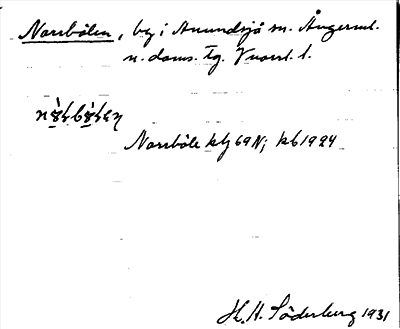 Norrbölen, by i Anundsjö sn. Ångerml.
n. doms. tg. Vnorrl. l.
Norrböle klj 69 N; kb 1924
H. H. Söderberg 1931